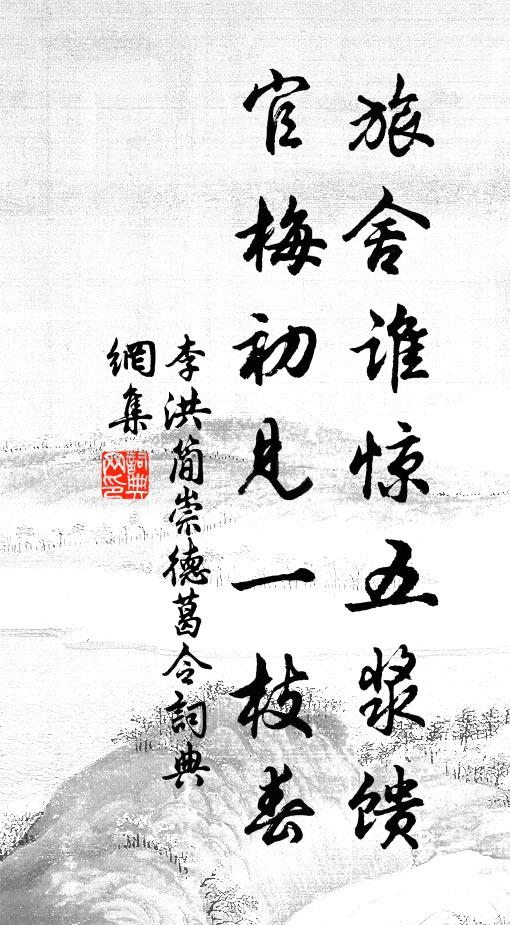 旅舍谁惊五浆馈
官梅初见一枝春
李洪简崇德葛令詞典
網集
詞典
网印